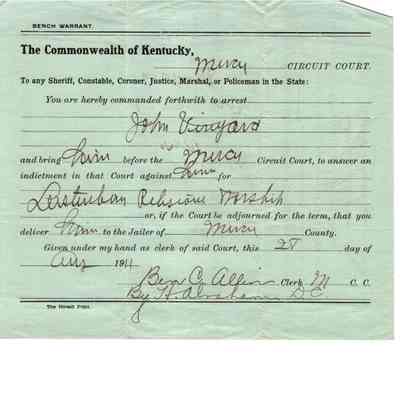 BENCH WARRANT.
The Commonwealth of Kentucky,
Mercer CIRCUIT COURT.
To any Sheriff, Constable, Coroner, Justice, Marshal, or Policeman in the State:
You are hereby commanded forthwith to arrest
John Vinyard
and bring him before the Mercer Circuit Court, to answer an
indictment in that Court against him for
Religious Worship
or, if the Court be adjourned for the term, that you
deliver him to the Jailer of Mercer County.
Given under my hand as clerk of said Court, this 28 day of
Aug 1911
Ben C. Allin Clerk M C. C.
By H. D.C.
The Herald Print.